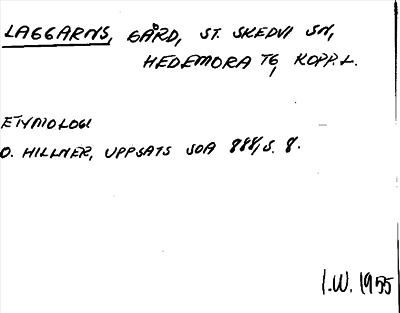 LAGGARNS, GÅRD, ST. SKEDVI SN,
HEDEMORA TG, KOPP. L.
ETYMOLOGI
O. HILLNER, UPPSATS SOA 888/S. 8.
I.W. 1955